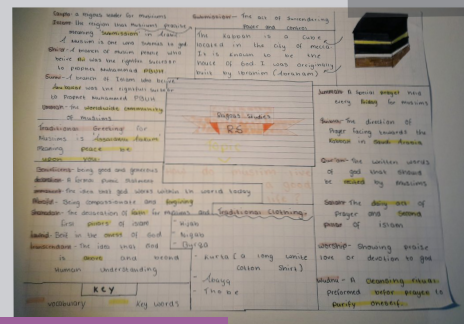 a religious leader for Muslims
Islam - the religion that Muslims practise
Meaning 'submission' in
Muslim is one who submits to god
Shia - A branch of Muslim people who
believe Ali was the rightful successor
to prophet Muhammed PBUH
Sunni - A branch of Islam who believe
Abu bakar was the rightful successor
to Prophet Muhammed PBUH
Ummah - The worldwide community
of muslims
Traditional Greeting for
Muslims is
Meaning peace be
upon you
Beneficence - being good and generous
Immanence - The idea that god works within the world today
Merciful - Being compassionate and forgiving
Shahadah - The declaration of faith for muslims and
first pillars of islam
Tawhid - Belief in the oneness of God
Transcendence - The idea that God
is above and beyond
Human understanding
KEY
Vocabulary
Key words
Submission - The act of surrendering
power and control
The Kabbah is a cube
located in the city of mecca
It is known to be the
house of God & was originally
built by Ibrahim (Abraham)
Religious Studies
RS
Traditional Clothing:
- Hijab
- Niqab
- Burqa
- Kurta (a long white
cotton shirt)
- Thobe
Jummah - A special prayer held
every friday for muslims
The direction of
Prayer facing towards the
Kabbah in Saudi Arabia
Qur'an - The written words
of god that should
be recited by Muslims
Salah - The daily acts of
prayer and second
pillar of Islam
Worship - Showing praise
love or devotion to god
Wudu - A cleansing ritual
preformed before prayer to
purify oneself.